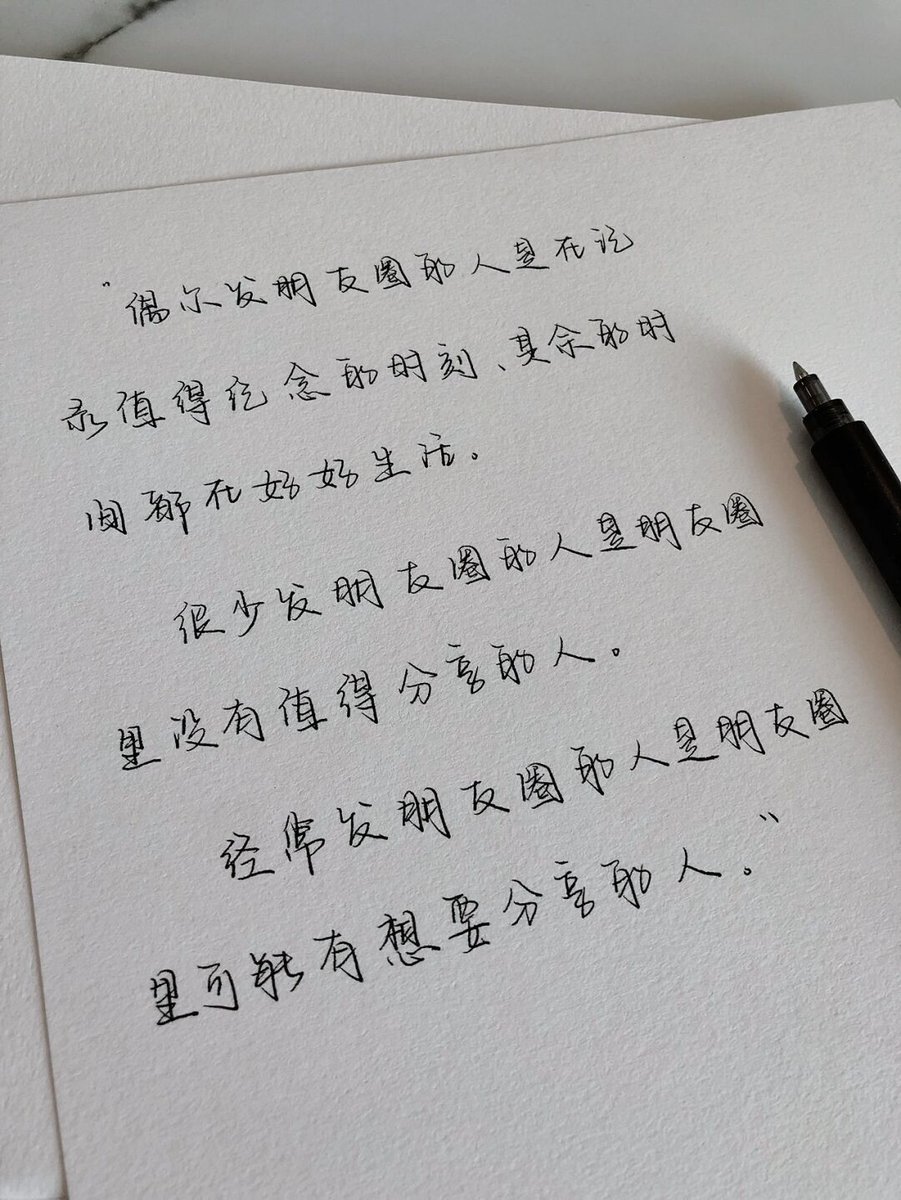 “偶尔发朋友圈的人是在记
录值得纪念的时刻、其余的时
间都在好好生活。
很少发朋友圈的人是朋友圈
里没有值得分享的人。
经常发朋友圈的人是朋友圈
里可能有想要分享的人。”